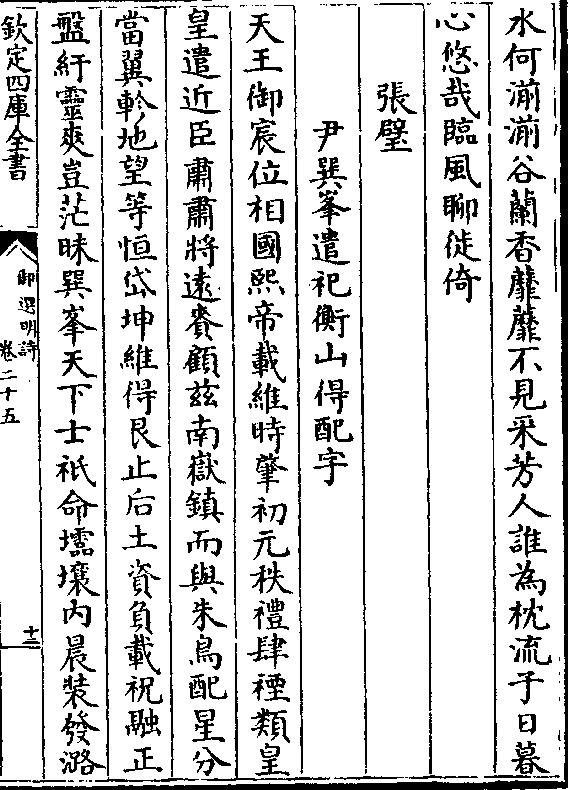 水何湔湔谷蘭香靡靡不見采芳人誰為枕流子日暮
心悠哉臨風聊徙倚
張璧
尹巽峯遣祀衡山得配字
天王御宸位相國熙帝載維時肇初元秩禮肆禋類皇
皇遣近臣肅肅將遠賚顧茲南嶽鎮而與朱鳥配星分
當翼軫地望等恒岱坤維得艮止后土資負載祝融正
盤紆靈爽豈茫昧巽峯天下士祇命壖壤內晨裝發潞
欽定四庫全書
御選明詩
卷二十五
十三